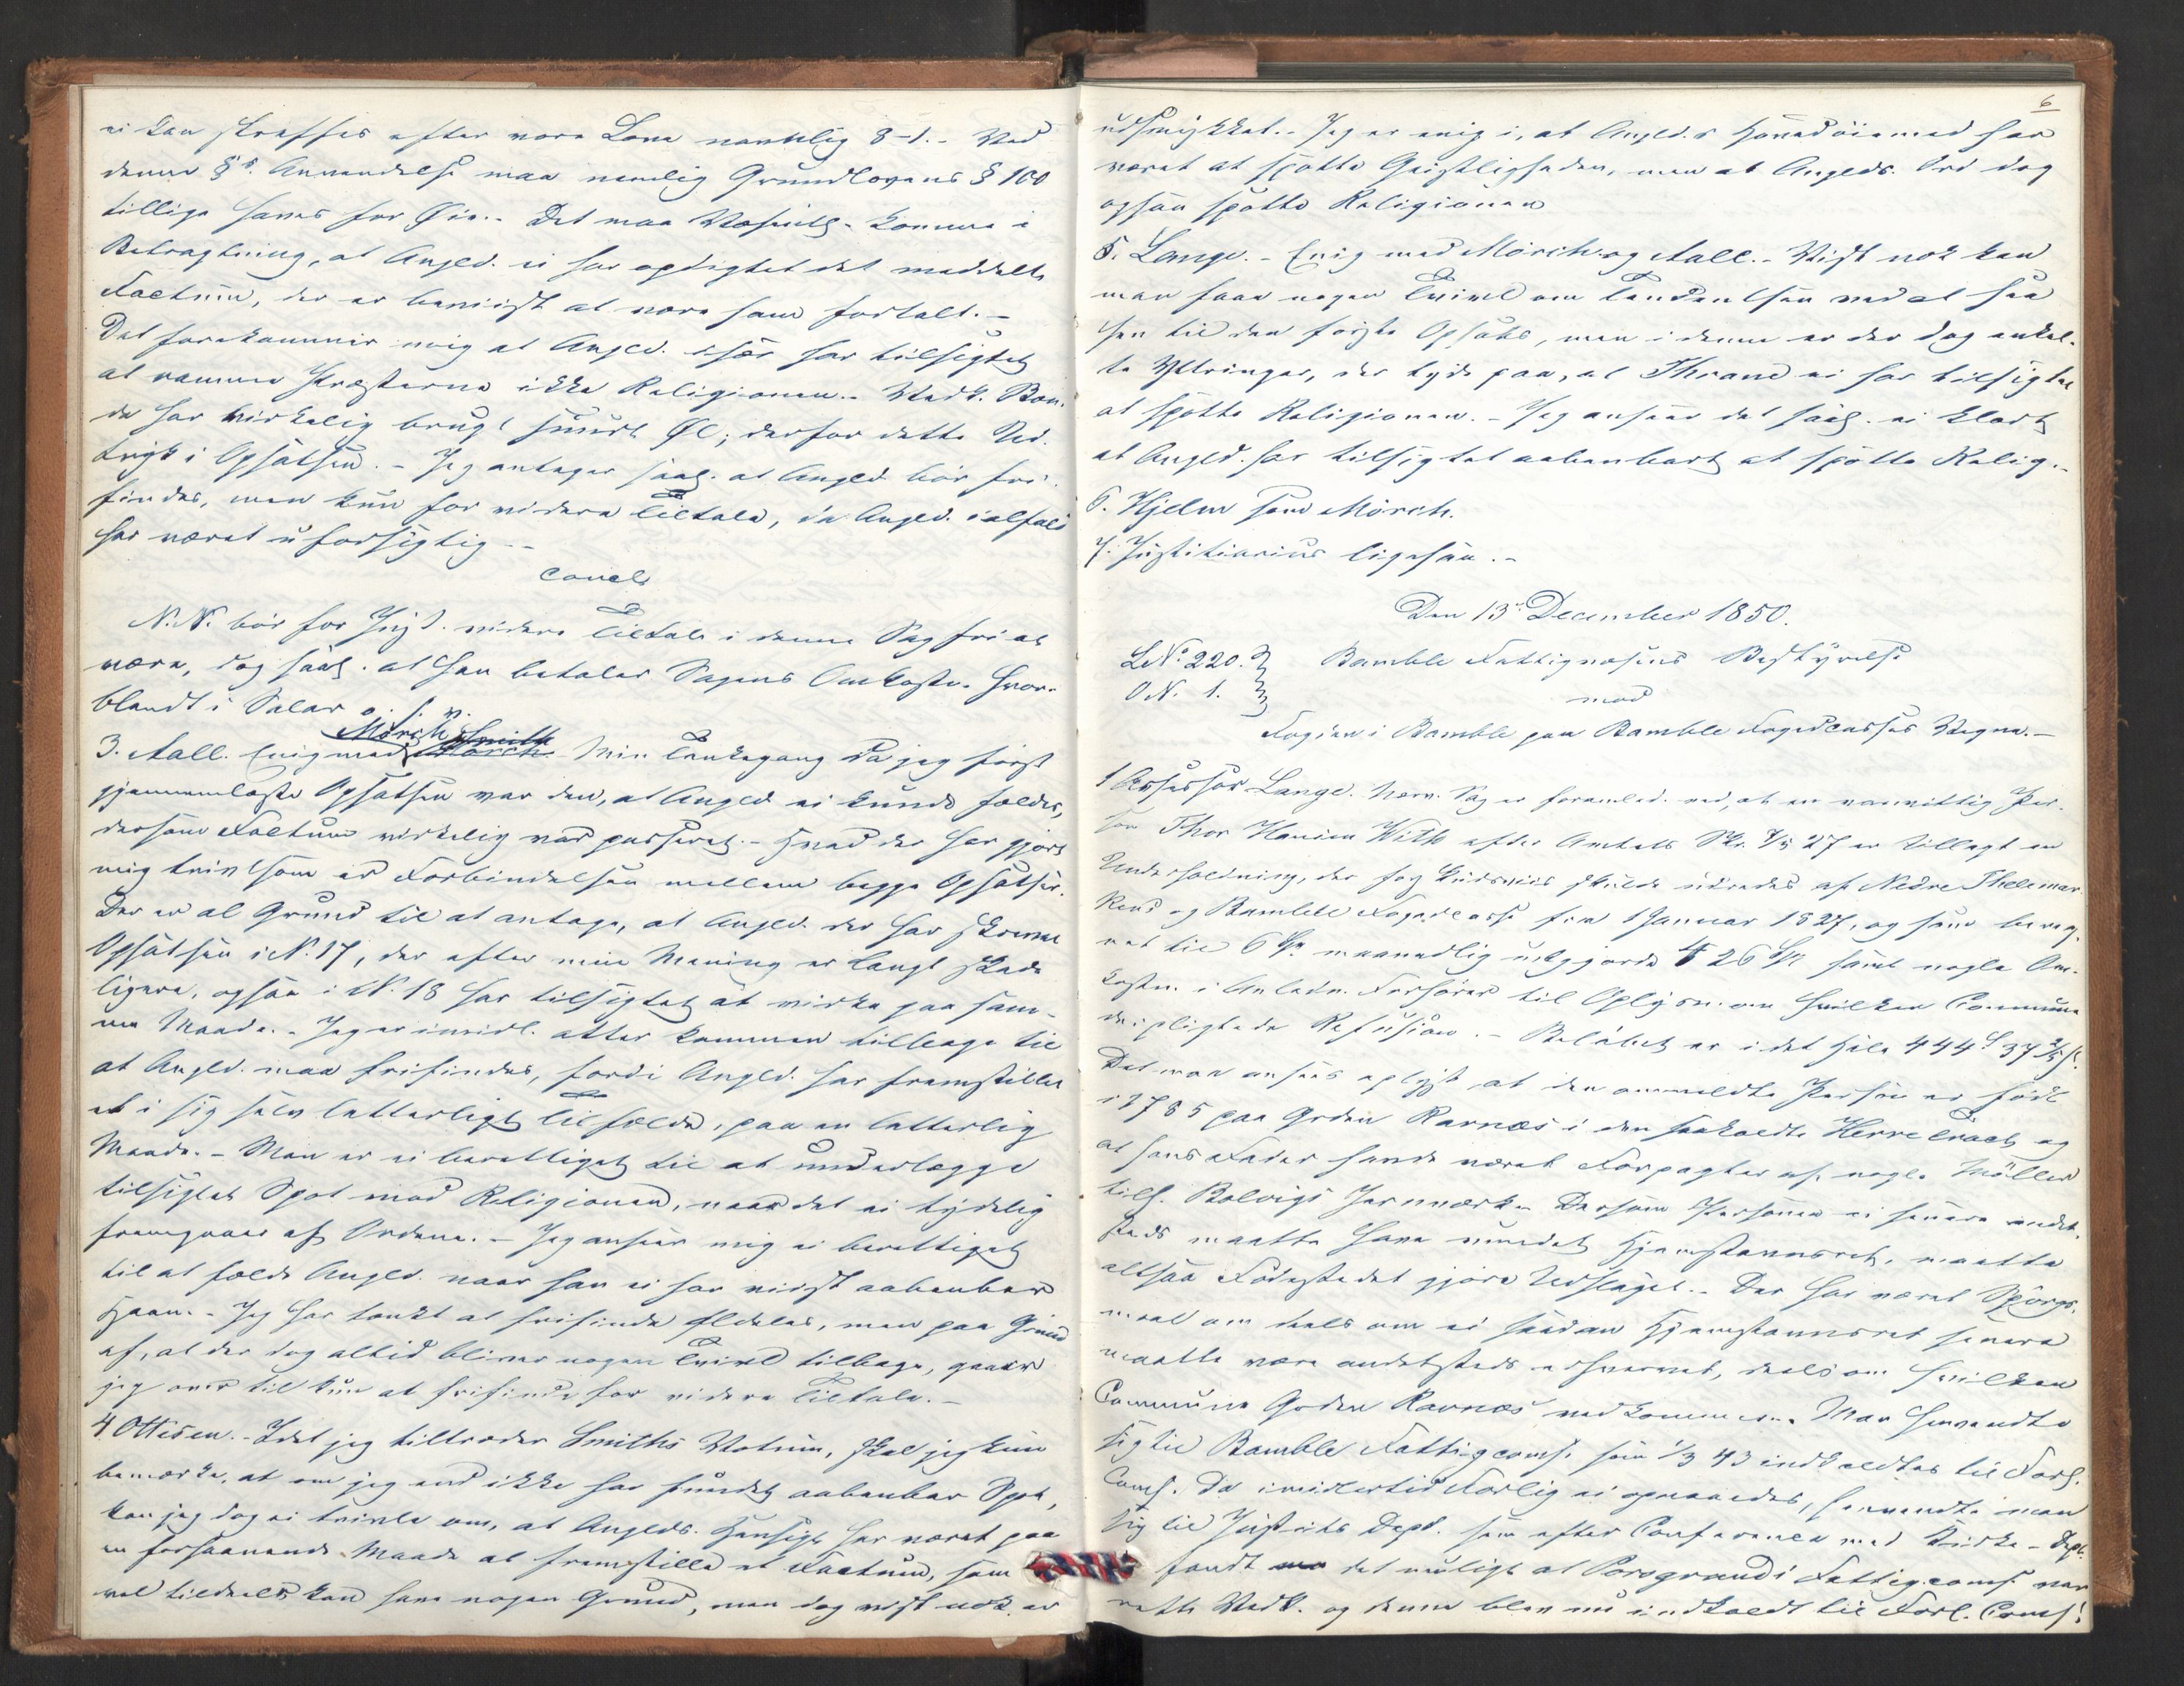 ei kan straffes efter vore Love navnlig 8-1. - Ved
denne §s. Anvendelse maa nemlig Grundlovens § 100
tillige haves for Øie. - Det maa Væsentl. komme i
Betragtning, at Angld. ei har opdigtet det meddelte
Factum, der er beviist at være som fortalt. -
Det forekommer mig at Angld. især har tilsigtet
at ramme Præsterne ikke Religionen. - Vedk.
de har virkelig brugt suurt Øl; derfor dette Ud-
tryk i Opsatsen. - Jeg antager saal. at Angld. bör fri-
findes, men kun for videre Tiltale, da Angld. ialfald
har været uforsigtig. -
Concl.
N.N. bör for Just. videre Tiltale i denne Sag fri at
være, dog saal. at han betaler Sagens Omkostn. hvor-
blandt i Salær o. s. v.
3. Aall. Enig med Mörch. Min Tankegang da jeg først
gjennemlæste Opsatsen var den, at Angld. ei kunde fældes,
dersom Factum virkelig var passeret. - Hvad der har gjort
mig tvivlsom er Forbindelsen mellem begge Opsatser.
Der er al Grund til at antage, at Angld. der har skrevet
Opsatsen i N. 17, der efter min Mening er langt skade-
ligere, ogsaa i N. 18 har tilsigtet at virke paa sam-
me Maade. - Jeg er imidl. atter kommen tilbage til
at Angld. maa frifindes, fordi Angld. har fremstillet
et i sig selv latterligt Tilfælde, paa en latterlig
Maade. - Man er ei berettiget til at underlægge
tilsigtet Spot mod Religionen, naar det ei tydelig
fremgaaer af Ordene. - Jeg anseer mig ei berettiget
til at fælde Angld. naar han ei har viist aabenbar
Haan. - Jeg har tænkt at frifinde aldeles, men paa Grund
af, at der dog altid bliver nogen Tvivl tilbage, gaaer
jeg over til kun at frifinde for videre Tiltale. -
4 Ottesen. - Idet jeg tiltræder Smiths Votum, skal jeg kun
bemærke, at om jeg end ikke har fundet aabenbar Spot,
kan jeg dog ei tvivle om, at Anglds. Hensigt har været paa
en forhaanende Maade at fremstille et Factum, som
vel tildeels kan have nogen Grund, men dog vist nok er
6
udsmykket. - Jeg er enig i, at Angld.s Hovedøiemed har
været at spotte Geistligheden, men at Anglds. Ord dog
ogsaa spotte Religionen
5. Lange. - Enig med Mörch og Aall. - Vist nok kan
man faae nogen Tvivl om Tendentsen ved at see
hen til den første Opsats, men i denne er der dog enkel-
te Yttringer, der tyde paa, at Thrane ei har tilsigtet
at spotte Religionen. - Jeg anseer det saal. ei klart
at Angld. har tilsigtet aabenbart at spotte Relig. -
6. Hjelm som Mörch.
7. Justitiarius ligesaa. -
Den 13de December 1850.
L.No. 220. Bamble Fattigvæsens Bestyrelse
O.N. 1. mod
Fogden i Bamble paa Bamble Fogedcasses Vegne. -
1 Assessor Lange. Nærv. Sag er foranled. ved, at en vanvittig Per-
son Thor Hansen With efter Amtets Skr. 27 er tillagt en
Underholdning, der forskudsviis skulde udredes af Nedre Thelemar-
kens og Bamble Fogedcasse fra 1 Januar 1827, og som bereg-
net til 6 maanedlig udgjorde 426 samt nogle Om-
kostn. i Anledn. Forhører til Oplysn. om hvilken Commune
der pligtede Refusion. - Belöbet er i det Hele 444 37
Det maa ansees oplyst at den ommeldte Person er født
i 1785 paa Grden Ravnæs i den saakaldte Herre Trakt og
at hans Fader havde været Forpagter af nogle Möller
tilh. Bolvigs Jernværk. Dersom Personen ei senere andet-
steds maatte have vundet Hjemstavnsret, maatte
altsaa Fødestedet gjøre Udslaget. - Der har været Spörgs-
maal om deels om ei saadan Hjemstavnsret senere
maatte være andetsteds erhvervet, deels om hvilken
Commune Grden Ravnæs vedkommer. - Man henvendte
sig til Bamble Fattigcomm. som 1/3 43 indkaldtes til Forl.
Comm. Da imidlertid Forlig ei opnaaedes, henvendte man
sig til Justits Dept. som efter Conference med Kirke-Dept.
fandt det muligt at Porsgrunds Fattigcomm. var
rette Vedk. og denne blev nu indkaldt til Forl. Comm.